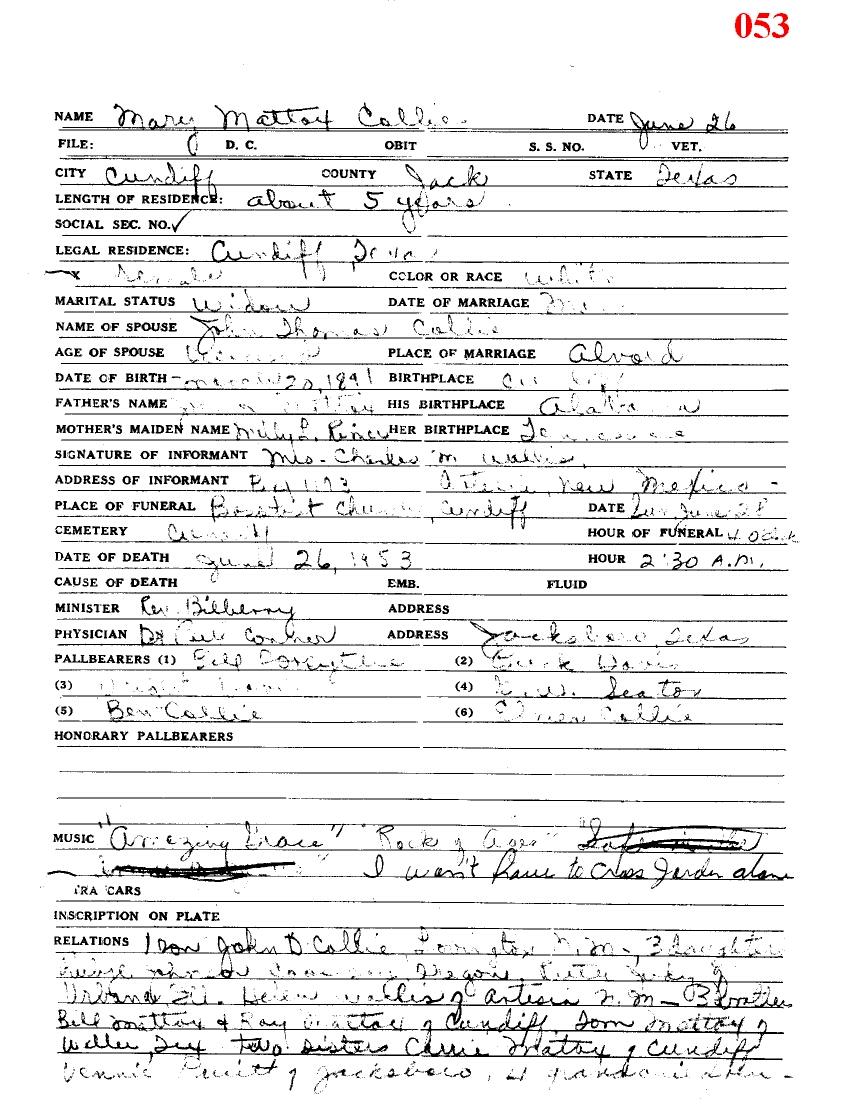 053
NAME Mary Mattox Collie DATE June 26
FILE: D. C. OBIT S. S. NO. VET.
CITY Cundiff COUNTY Jack STATE Texas
LENGTH OF RESIDENCE: about 5 years
SOCIAL SEC. NO. ✓
LEGAL RESIDENCE: Cundiff Texas
x Female COLOR OR RACE White
MARITAL STATUS Widow DATE OF MARRIAGE
NAME OF SPOUSE John Thomas Collie
AGE OF SPOUSE PLACE OF MARRIAGE Alvord
DATE OF BIRTH - March 20, 1891 BIRTHPLACE Cundiff
FATHER'S NAME Mattox HIS BIRTHPLACE Alabama
MOTHER'S MAIDEN NAME Mily L. HER BIRTHPLACE Tennessee
SIGNATURE OF INFORMANT Mrs. Charles M Wallis
ADDRESS OF INFORMANT Artesia, New Mexico -
PLACE OF FUNERAL Baptist Church, Cundiff DATE Sun June 28
CEMETERY Cundiff HOUR OF FUNERAL 4 Oclock
DATE OF DEATH June 26, 1953 HOUR 2:30 A.M.
CAUSE OF DEATH EMB. FLUID
MINISTER Rev. Bilberry ADDRESS
PHYSICIAN Dr ADDRESS Jacksboro, Texas
PALLBEARERS (1) Bill Forsythe (2) Davis
(3) (4) Seaton
(5) Ben Collie (6) Elmer Collie
HONORARY PALLBEARERS
MUSIC "Amazing Grace" "Rock of Ages" "Safe in the
I won't have to Cross Jorden alone
TRA CARS
INSCRIPTION ON PLATE
RELATIONS 1 son John D Collie, Lovington N.M-, 3 daughters
Johnson Oregon, Ruth of
Urbana Ill. Helen Wallis of Artesia N.M - 3 Brothers
Bill Mattox & Ray Mattox of Cundiff, Tom Mattox of
Weller, Tex two sisters Carrie Mattox of Cundiff
Vennie Pruitt of Jacksboro, 4 grandchildren -